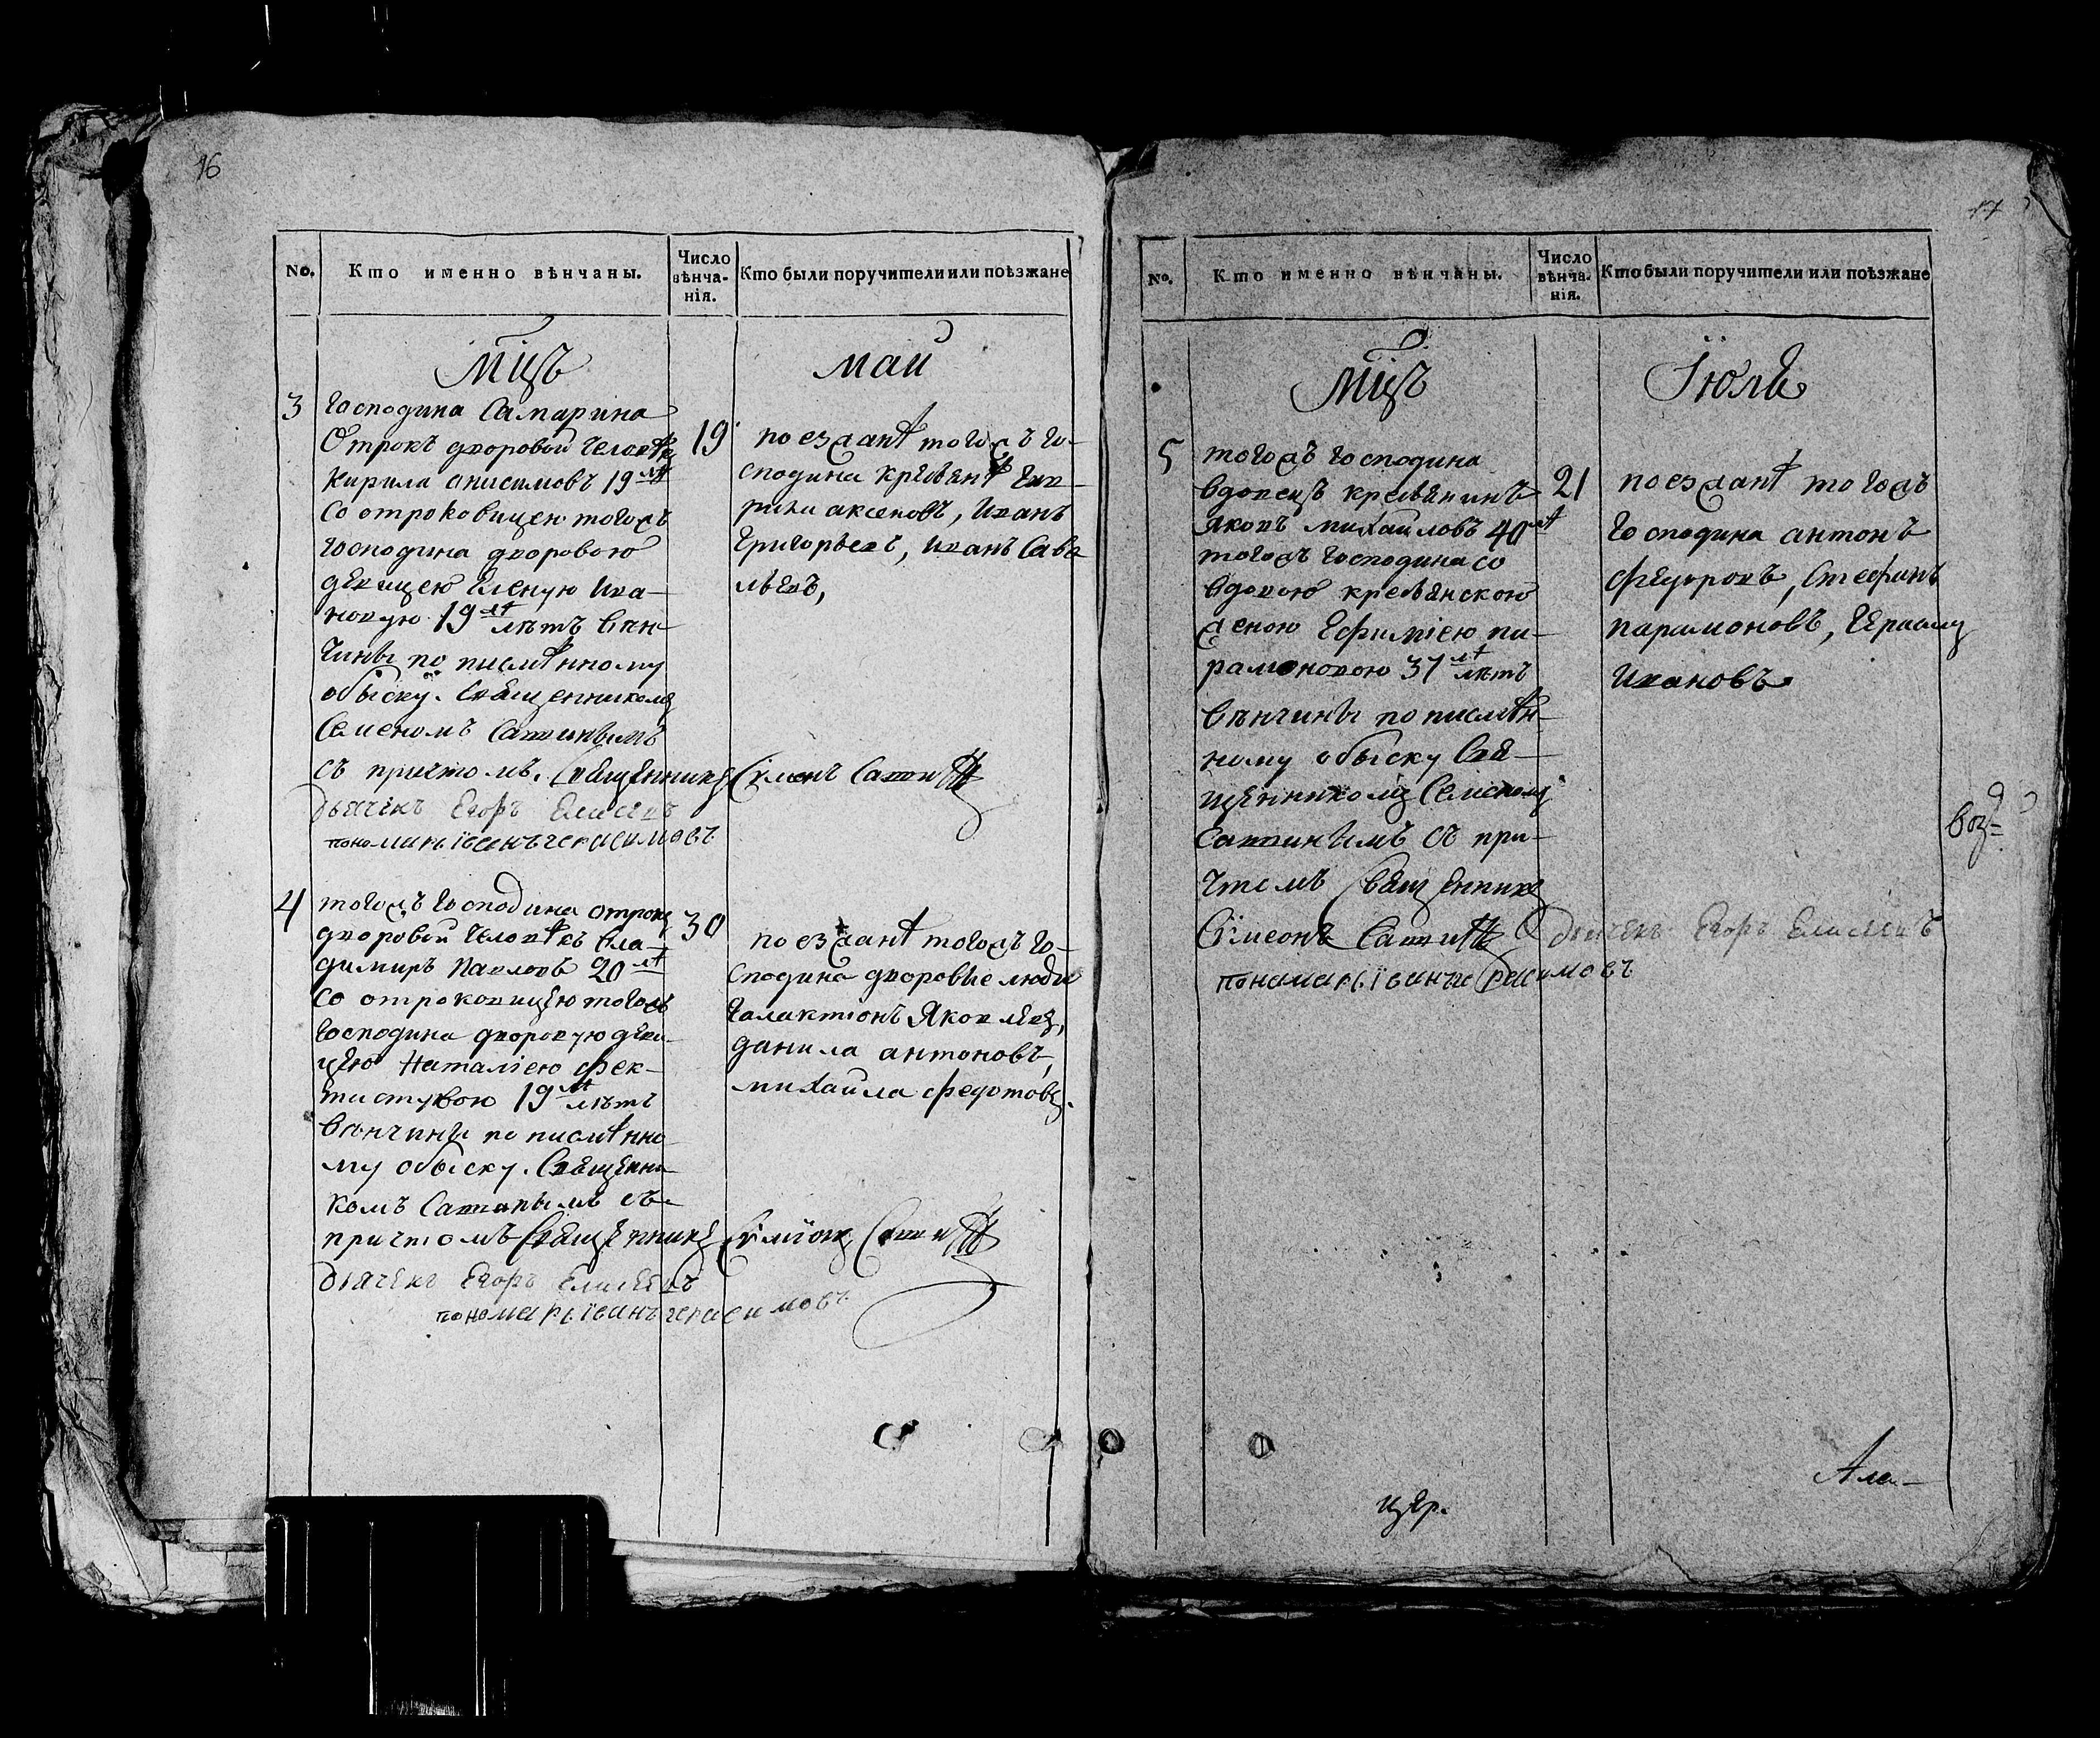 16
No. Кто именно вѣнчаны. Число вѣнча-нія. Кто были поручители или поѣзжане
Мцъ май
3
Господина Самарина
Отрокъ дворовой человекъ
Кирила анисимовъ 19 лѣ
со отроковицею тогожъ
господина дворовою
девицею Еленую Ива-
новую 19 лѣ лѣтъ вен-
чаны по писменному
обыску. Священникомъ
Семеномъ
съ причтомъ. Священникъ Сѵмеонъ
дьячекъ Егоръ Елисеевъ
понамарь іванъ герасимовъ
19
поезжане тогожъ го-
сподина крестьяне
аксеновъ, Иванъ
Григорьевъ, иванъ Саве
льевъ,
4
тогожъ господина отрокъ
дворовой человекъ Вла-
димиръ Павловъ 20 лѣ
со отроковицею тогожъ
господина дворовую деви-
цею Наталіею фек-
тистувою 19 лѣ лѣтъ
венчаны по писменно
му обыску. Священни-
комъ съ
причтомъ Священникъ Сѵмеонъ
дьячекъ Егоръ Елисеевъ
понамарь іванъ герасимовъ
30
поезжане тогожъ го-
сподина дворовые люди
Галактіонъ Яковлевъ,
данила антоновъ,
михайла федотовъ.
17
No. Кто именно вѣнчаны. Число вѣнча-нія. Кто были поручители или поѣзжане
Мцъ Іюль
5
тогожъ господина
вдовецъ крестьянинъ
яковъ михайловъ 40 лѣ
тогожъ господина со
вдовою крестьянскою
женою Ефиміею па-
рамоновою 37 лѣ лѣтъ
венчаны по писмен-
ному обыску Свя-
щенникомъ Семеномъ
съ при-
чтомъ Священникъ
Сѵмеонъ дьячекъ Егоръ Елисеевъ
понамарь іванъ герасимовъ
21
поезжане тогожъ
господина антонъ
федоровъ, Стефанъ
парамоновъ, Герасимъ
Ивановъ
Ала-
цер.